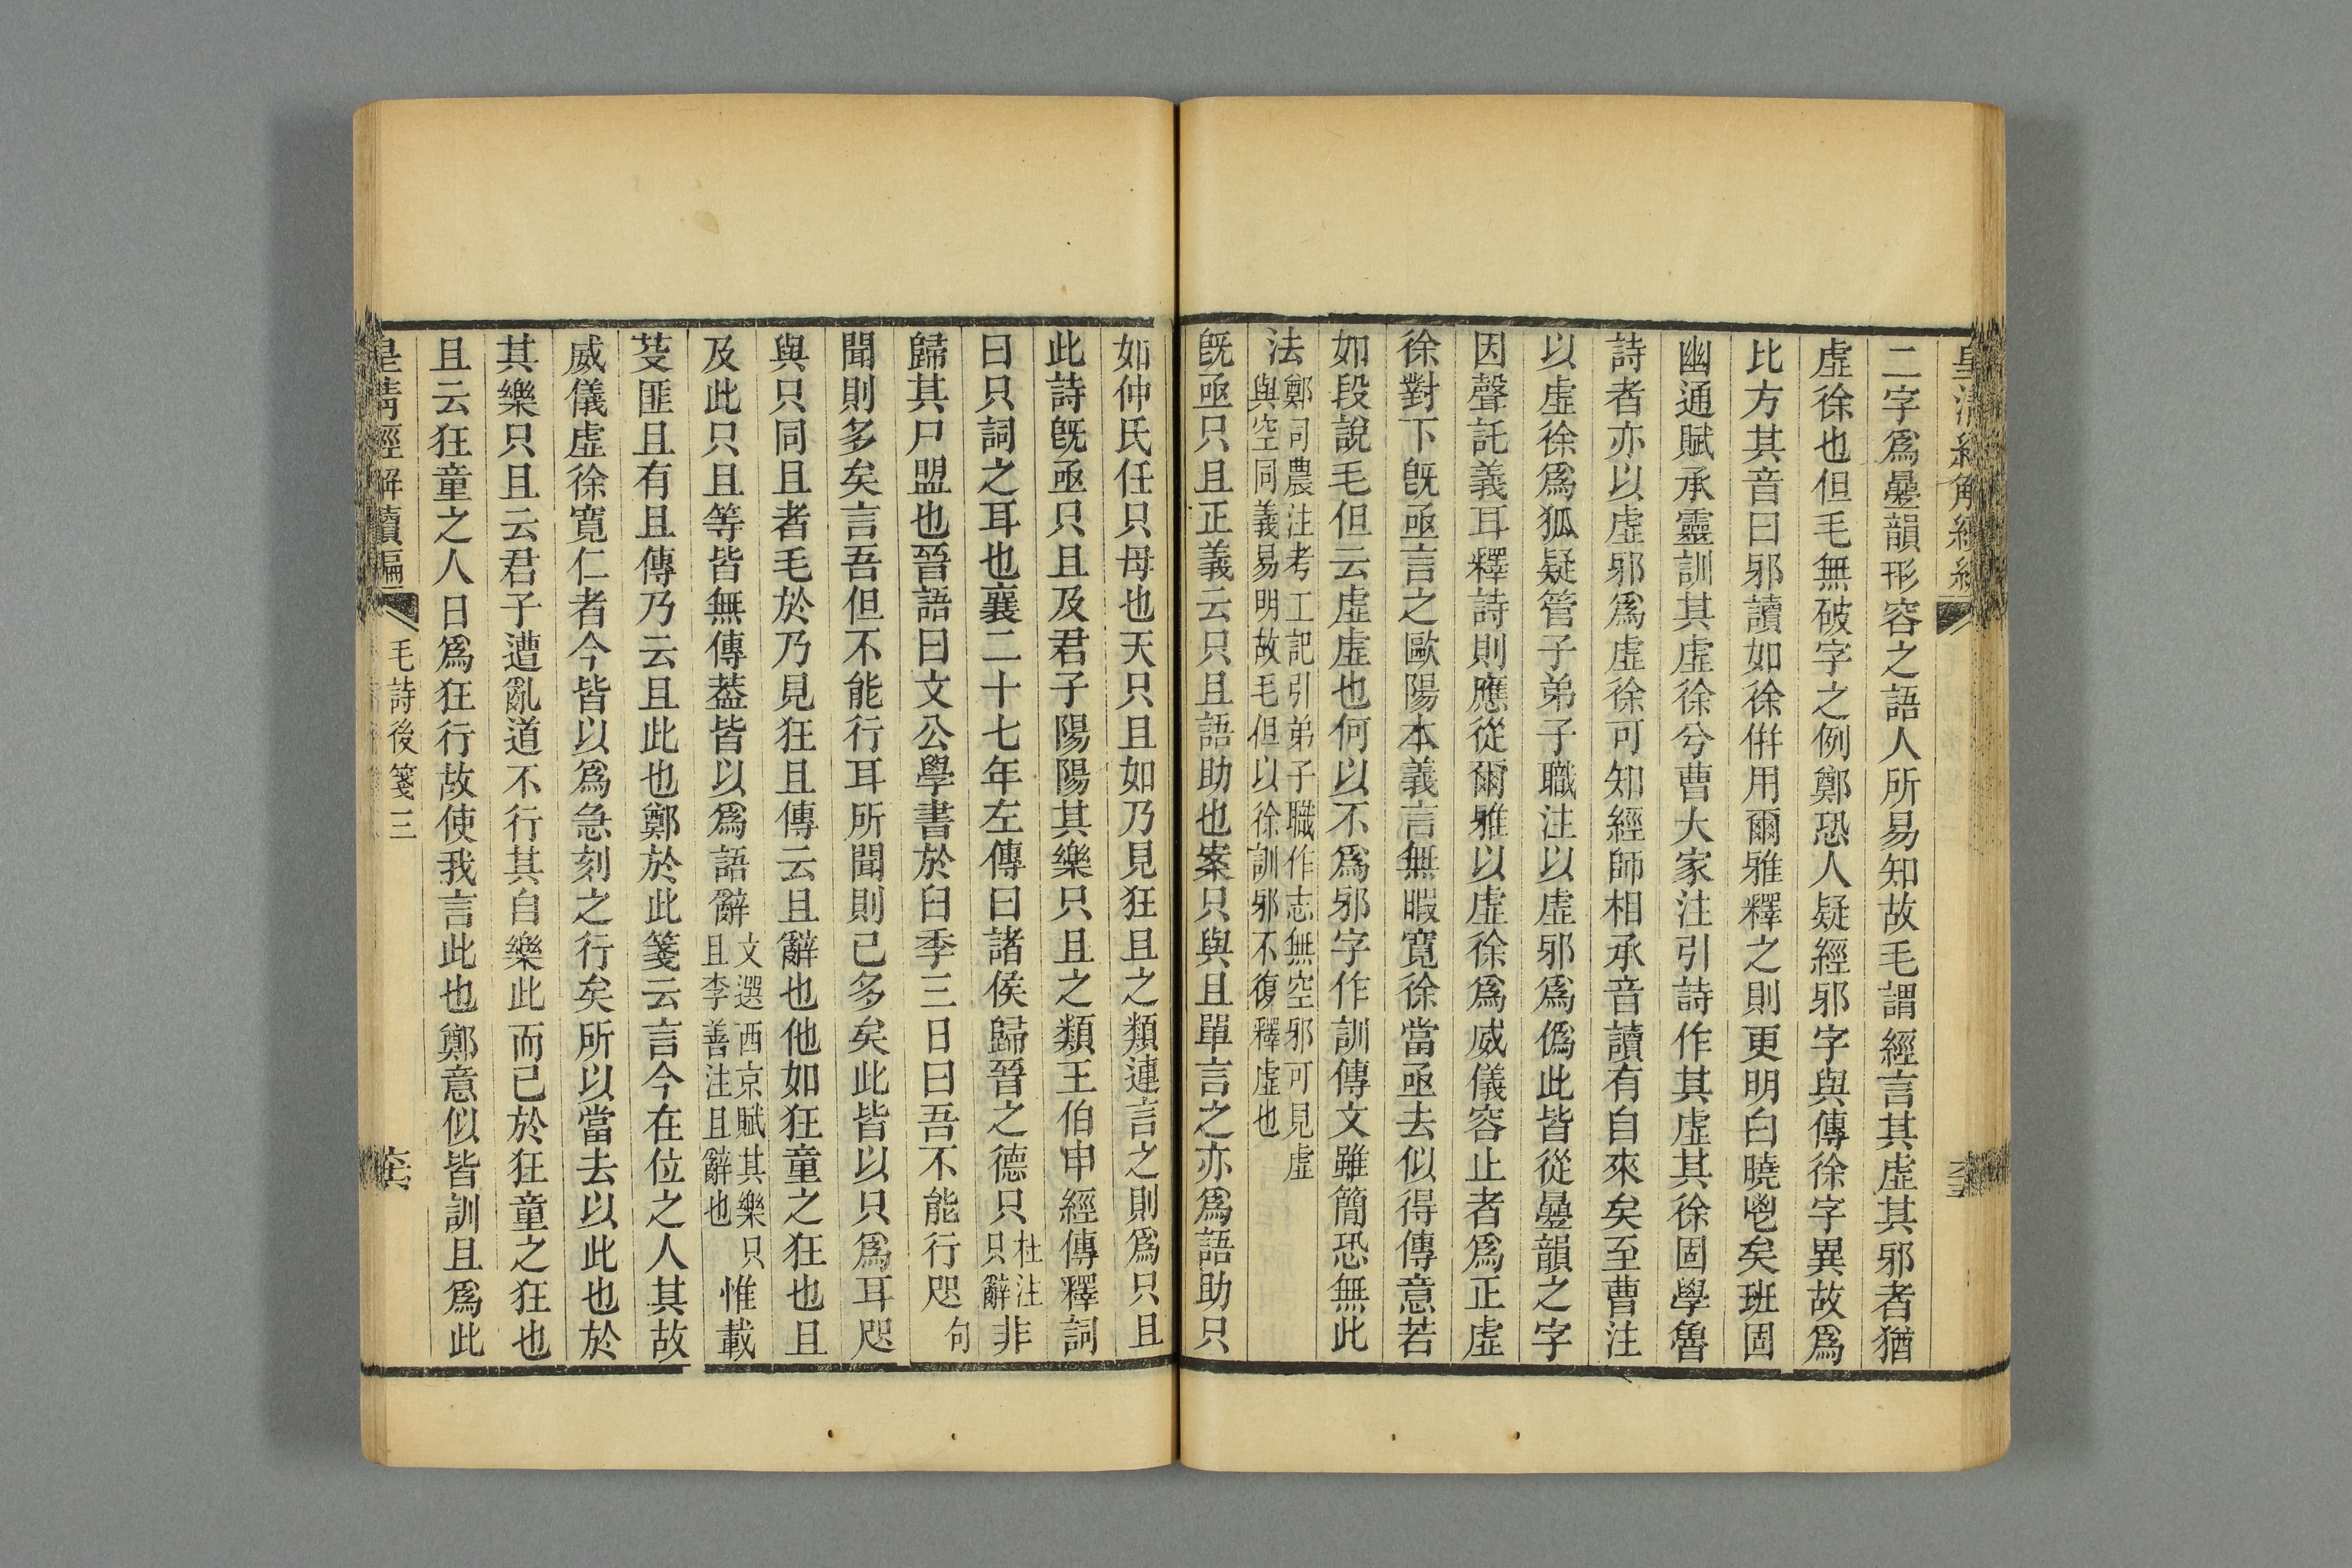 二字爲曡韻形容之語人所易知故毛謂經言其虛其邪者猶
虛徐也但毛無破字之例鄭恐人疑經邪字與傳徐字異故爲
比方其音曰邪讀如徐倂用爾雅釋之則更明白曉鬯矣班固
幽通賦承靈訓其虛徐兮曹大家注引詩作其虛其徐固學魯
詩者亦以虛邪爲虛徐可知經師相承音讀有自來矣至曹注
以虛徐爲狐疑管子弟子職注以虛邪爲僞此皆從曡韻之字
因聲託義耳釋詩則應從爾雅以虛徐爲威儀容止者爲正虛
徐對下旣亟言之歐陽本義言無暇寬徐當亟去似得傳意若
如段說毛但云虛虛也何以不爲邪字作訓傳文雖簡恐無此
法鄭司農注考工記引弟子職作志無空邪可見虛
與空同義易明故毛但以徐訓邪不復釋虛也
旣亟只且正義云只且語助也案只與且單言之亦爲語助只
如仲氏任只母也天只且如乃見狂且之類連言之則爲只且
此詩旣亟只且及君子陽陽其樂只且之類王伯申經傳釋詞
曰只詞之耳也襄二十七年左傳曰諸侯歸晉之德只杜注
只辭非
歸其尸盟也晉語曰文公學書於臼季三日曰吾不能行咫句
聞則多矣言吾但不能行耳所聞則已多矣此皆以只爲耳咫
與只同且者毛於乃見狂且傳云且辭也他如狂童之狂也且
及此只且等皆無傳葢皆以爲語辭文選西京賦其樂只
且李善注且辭也惟載
芟匪且有且傳乃云且此也鄭於此箋云言今在位之人其故
威儀虛徐寬仁者今皆以爲急刻之行矣所以當去以此也於
其樂只且云君子遭亂道不行其自樂此而已於狂童之狂也
且云狂童之人日爲狂行故使我言此也鄭意似皆訓且爲此
皇淸經解續編
毛詩後箋三